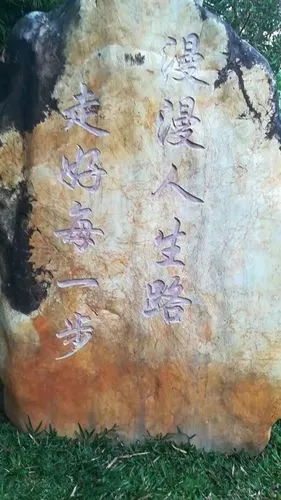 漫漫人生路
走好每一步